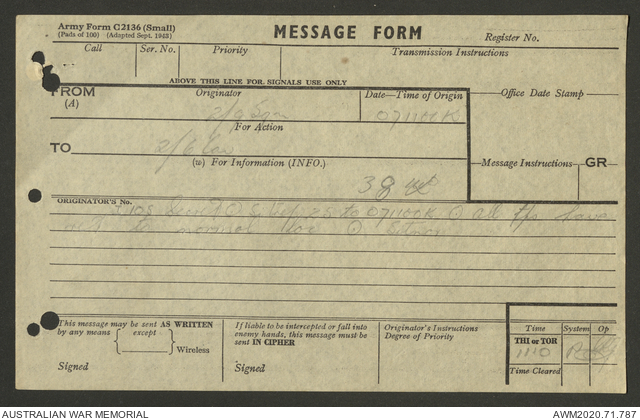 Army Form C2136 (Small)
(Pads of 100) (Adapted Sept. 1943)
MESSAGE FORM
Register No.
Call Ser. No. Priority Transmission Instructions
ABOVE THIS LINE FOR SIGNALS USE ONLY
FROM
(A)
Originator
Date—Time of Origin
Office Date Stamp
071100K
For Action
TO
2/6
(w) For Information (INFO.)
Message Instructions GR
38
ORIGINATOR'S No.
to 071100K all tps have
normal
This message may be sent AS WRITTEN
by any means except
Wireless
Signed
If liable to be intercepted or fall into
enemy hands, this message must be
sent IN CIPHER
Signed
Originator's Instructions
Degree of Priority
Time System Op
THI or TOR
1110
Time Cleared
AUSTRALIAN WAR MEMORIAL
AWM2020.71.787